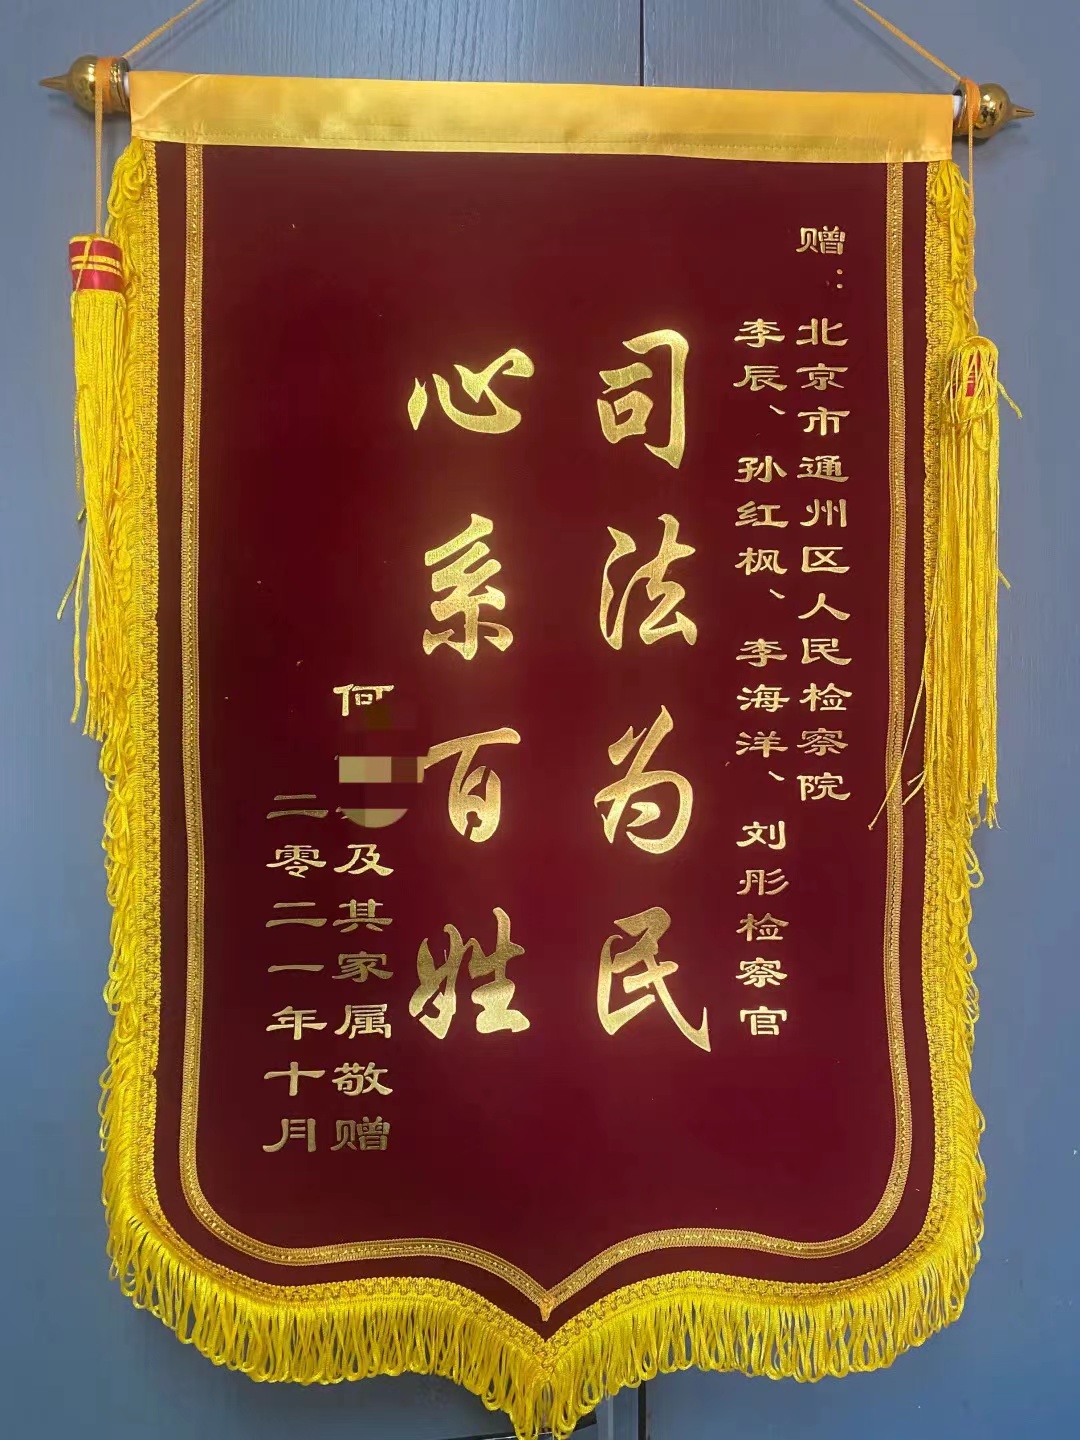 赠：北京市通州区人民检察院
李辰、孙红枫、李海洋、刘彤检察官
司法为民
心系百姓
何 及其家属敬赠
二零二一年十月